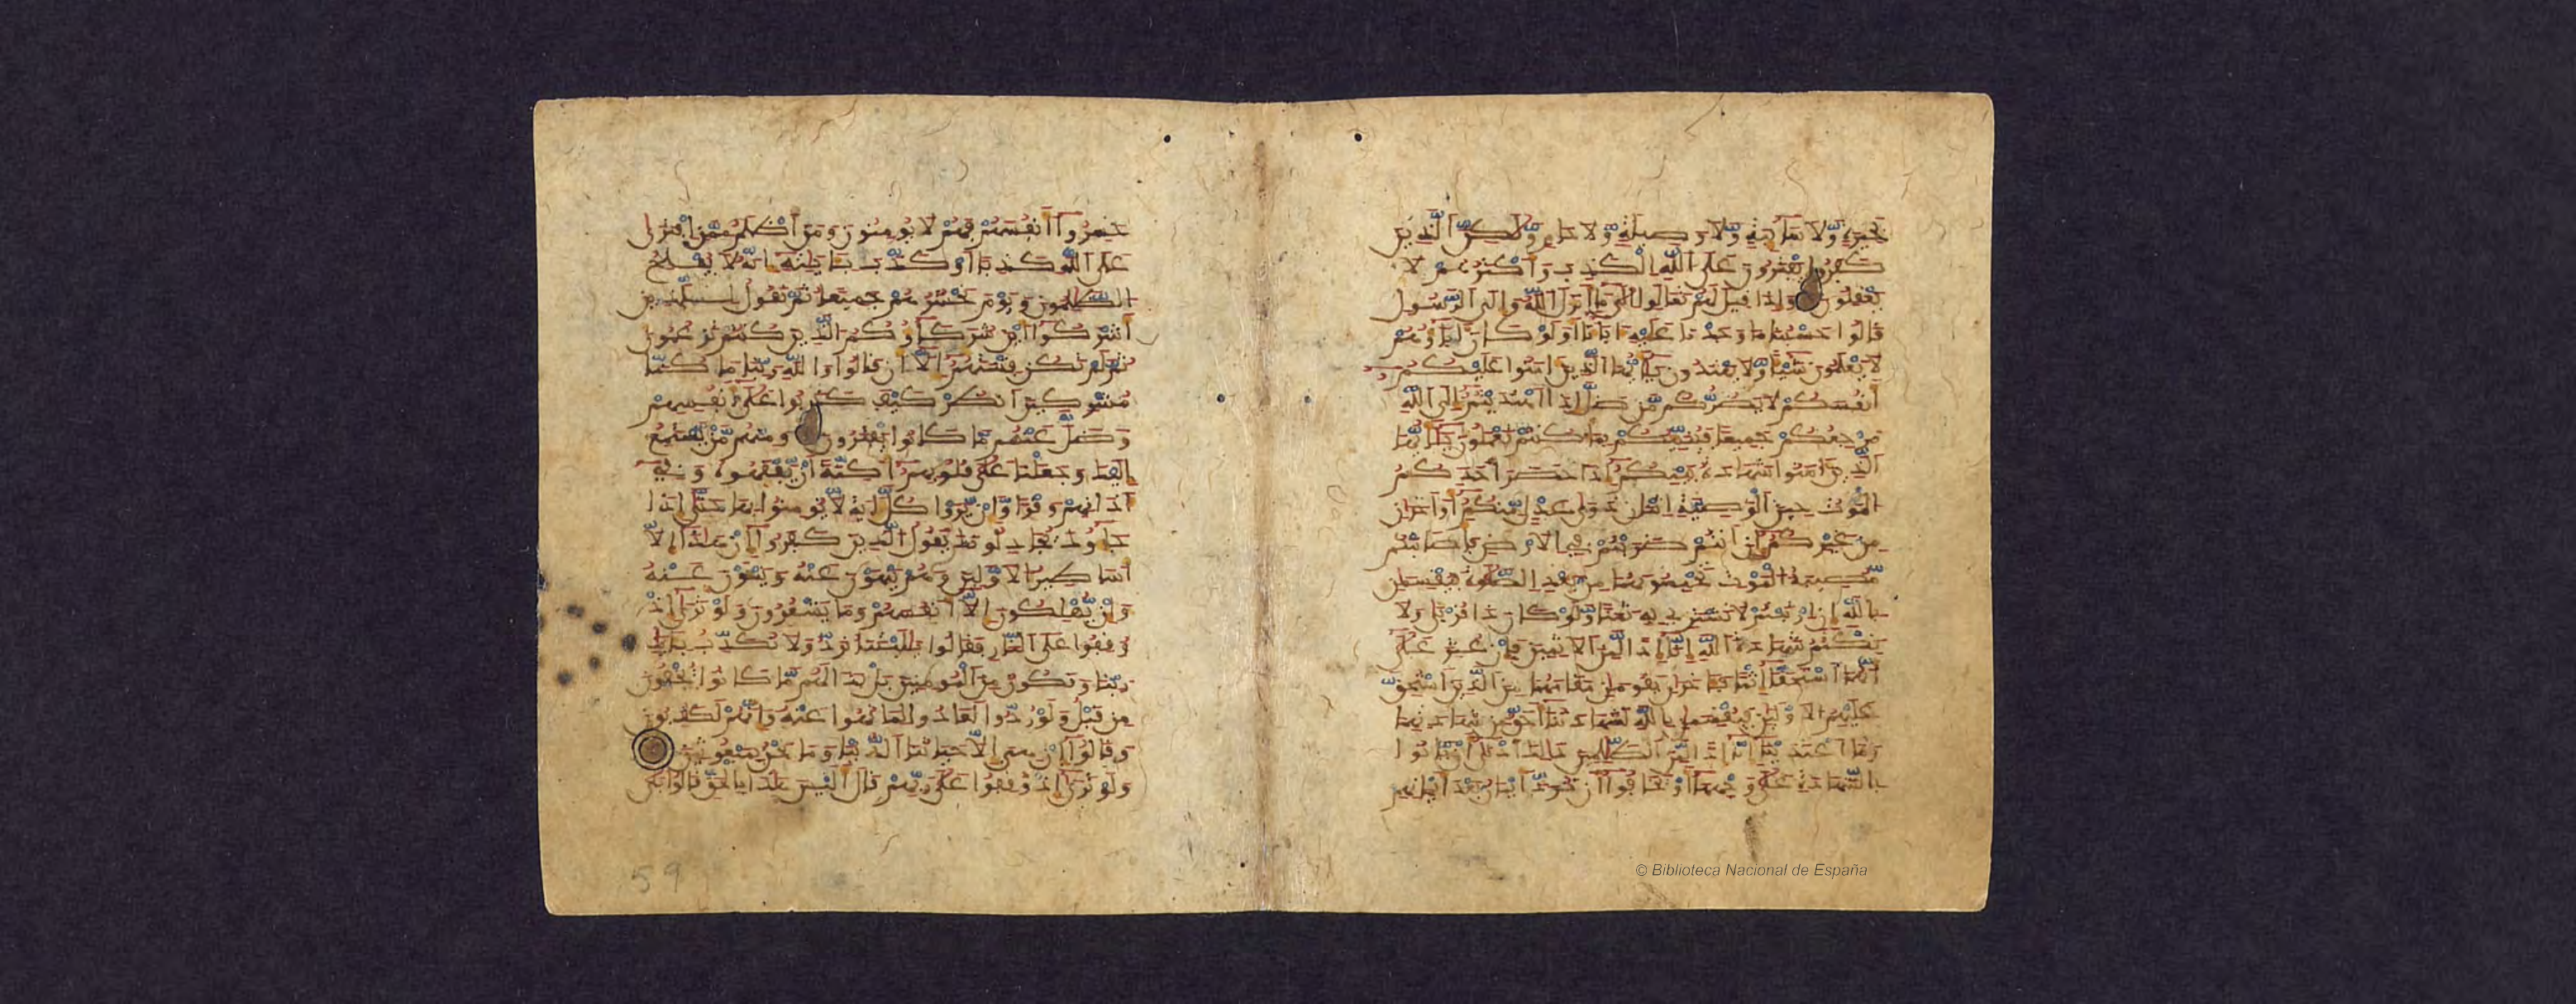 بحيرة ولا سائبة ولا وصيلة ولا حام ولكن الذين
كفروا يفترون على الله الكذب وأكثرهم لا
يعقلون وإذا قيل لهم تعالوا إلى ما أنزل الله وإلى الرسول
قالوا حسبنا ما وجدنا عليه اباءنا أولو كان اباؤهم
لا يعلمون شيئا ولا يهتدون يأيها الذين امنوا عليكم
أنفسكم لا يضركم من ضل إذا اهتديتم إلى الله
مرجعكم جميعا فينبئكم بما كنتم تعملون يأيها
الذين امنوا شهادة بينكم إذا حضر أحدكم
الموت حين الوصية اثنان ذوا عدل منكم أو اخران
من غيركم إن أنتم ضربتم في الارض فأصابتكم
مصيبة الموت تحبسونهما من بعد الصلوة فيقسمان
بالله إن ارتبتم لا نشتري به ثمنا ولو كان ذا قربى ولا
نكتم شهادة الله إنا إذا لمن الاثمين فإن عثر على
أنهما استحقا إثما فاخران يقومان مقامهما من الذين استحق
عليهم الاولين فيقسمان بالله لشهادتنا أحق من شهادتهما
وما اعتدينا إنا إذا لمن الظلمين ذلك أدنى أن يأتوا
بالشهادة على وجهها أو يخافوا أن ترد أيمان بعد أيمانهم
خسروا أنفسهم فهم لا يومنون ومن أظلم ممن افترى
على الله كذبا أو كذب بئايته إنه لا يفلح
الظلمون ويوم نحشرهم جميعا ثم نقول للذين
أشركوا أين شركاؤكم الذين كنتم تزعمون
ثم لم تكن فتنتهم إلا أن قالوا والله ربنا ما كنا
مشركين انظر كيف كذبوا على أنفسهم
وضل عنهم ما كانوا يفترون ومنهم من يستمع
إليك وجعلنا على قلوبهم أكنة أن يفقهوه وفي
ءاذانهم وقرا وإن يروا كل ءاية لا يومنوا بها حتى إذا
جاءوك يجادلونك يقول الذين كفروا إن هذا إلا
أساطير الاولين وهم ينهون عنه وينئون عنه
وإن يهلكون إلا أنفسهم وما يشعرون ولو ترى إذ
وقفوا على النار فقالوا يليتنا نرد ولا نكذب بئايت
ربنا ونكون من المومنين بل بدا لهم ما كانوا يخفون
من قبل ولو ردوا لعادوا لما نهوا عنه وإنهم لكذبون
وقالوا إن هي إلا حياتنا الدنيا وما نحن بمبعوثين
ولو ترى إذ وقفوا على ربهم قال أليس هذا بالحق قالوا بلى
59
© Biblioteca Nacional de España